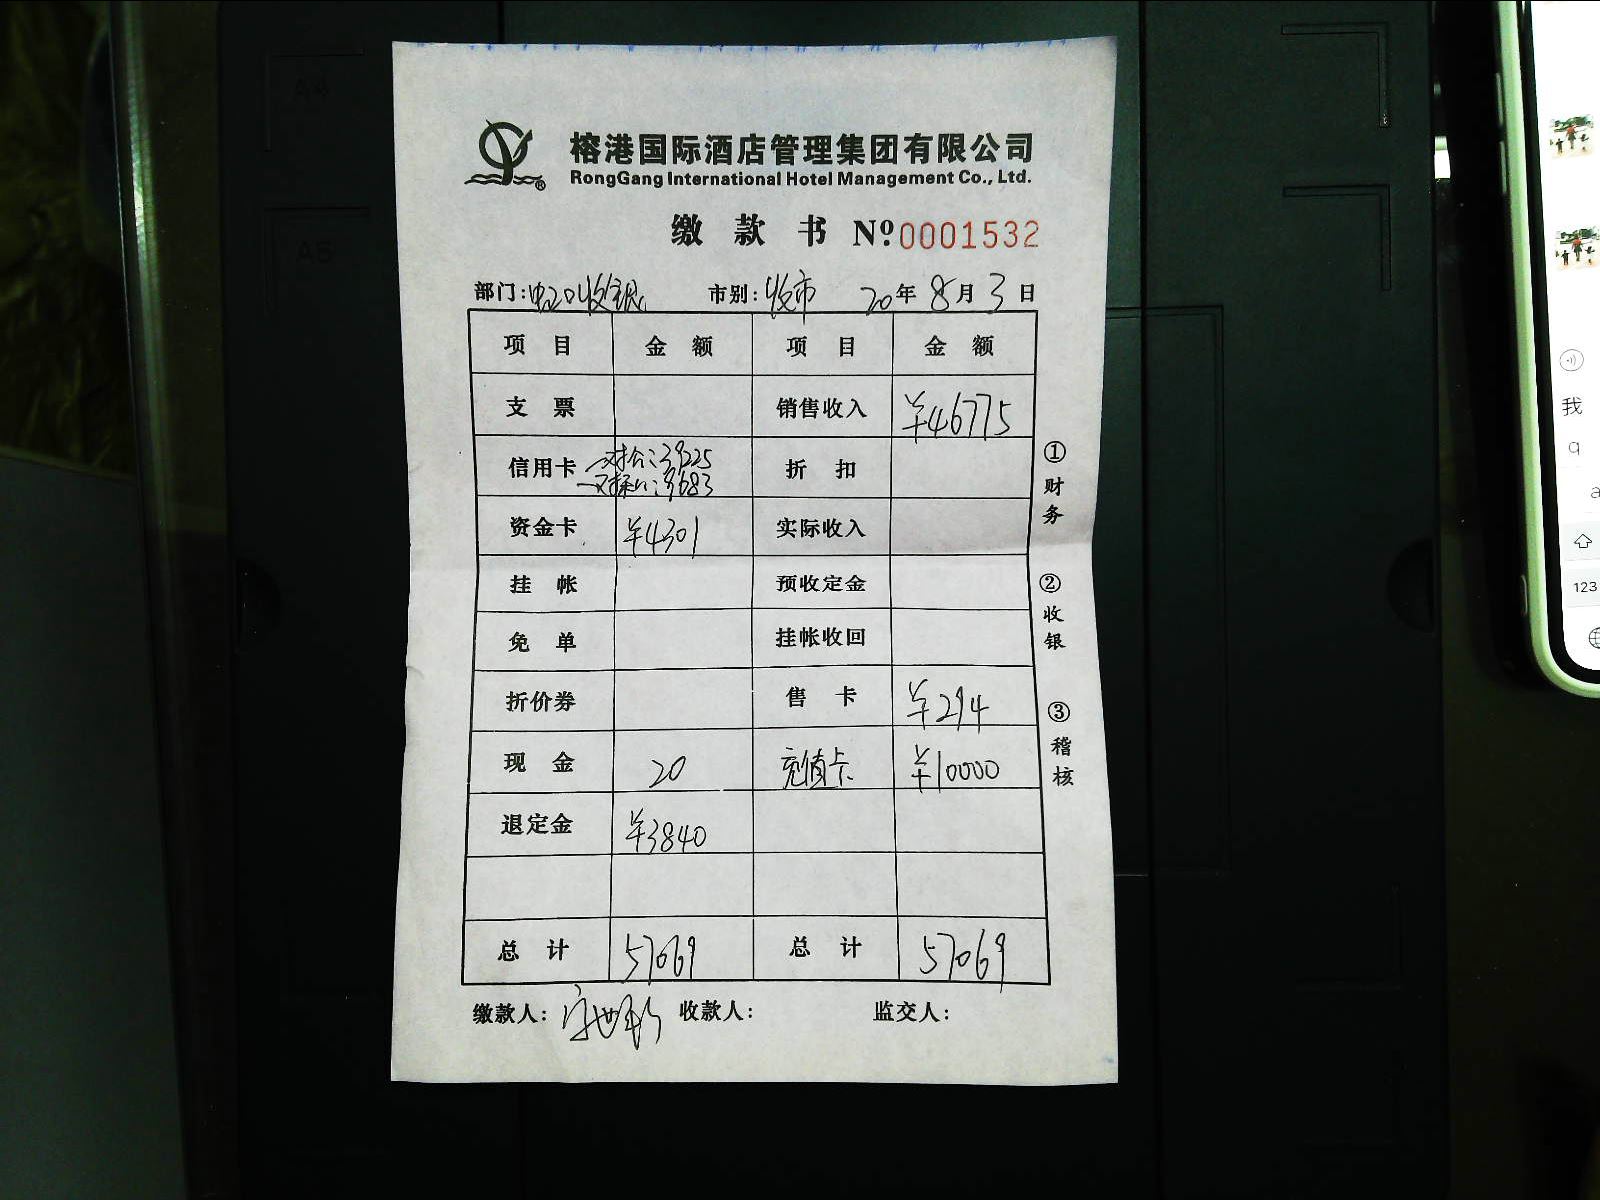 榕港国际酒店管理集团有限公司
RongGang International Hotel Management Co., Ltd.
缴款书 Nº 0001532
部门: 收银 市别: 夜市 20年8月3日
项目 金额 项目 金额
支票 销售收入 ¥46775
信用卡 对公:39225 折扣
9683
资金卡 ¥4301 实际收入
挂帐 预收定金
免单 挂帐收回
折价券 售卡 ¥294
现金 20 充值卡 ¥10000
退定金 ¥3840
总计 57069 总计 57069
缴款人: 收款人: 监交人:
①财务
②收银
③稽核
A4
A5
我
q
a
123